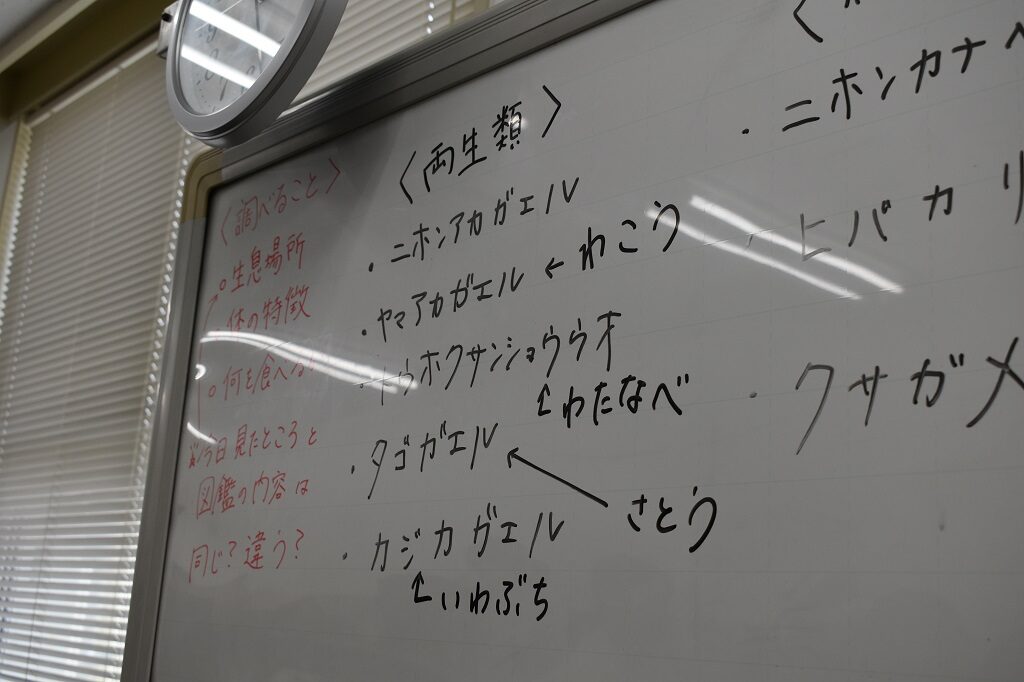 〈調べること〉
○生息場所
体の特徴
○何を食べる
今日見たところと
図鑑の内容は
同じ?違う?
〈両生類〉
・ニホンアカガエル
・ヤマアカガエル ← わこう
・トウホクサンショウウオ
↑わたなべ
・タゴガエル
さとう
・カジカガエル
↑いわぶち
〈
・ニホンカナヘ
ヒバカリ
・クサガメ